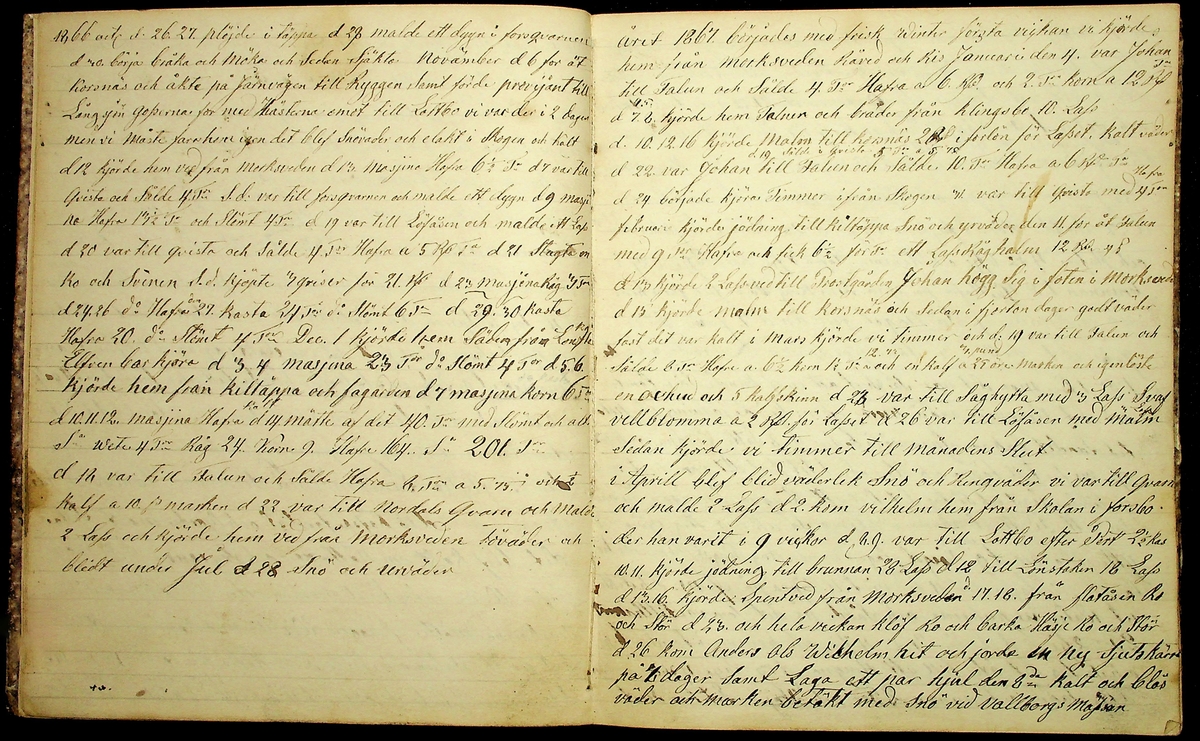 1866 octb d. 26. 27. plöjde i täppa d 28 malde ett dygn i forsqvarnen
d 30. börja bråka och Moka och Sedan Skäkta November d 6 for åt
Korsnäs och åkte på Jarnvägen till Ryggen samt förde provijant till
for med Hästarna emot till Lottbo vi var der i 2 dagar
men vi Måste fara hem igen det blef Snövader och elakt i Skogen och kalt
d 12 kjörde hem ved från Morksveden d 13 masjina Hafra 6½ Tr d 7 var till
Qvista och Sålde 4 Tr S.d. var till forsqvarnen och malde ett dygn d 9 masji
na Hafra 13½ Tr och Stömt 4 Tr d 19 var till Löfåsen och malde ett Lass
d 20 var till qvista och Sålde 4 Tr Hafra a 5 Rd Tr d 21 Slagta en
Ko och Svinen S.d. kjöpte 3 griser för 21 Rd d 23 masjina Råg
d 24. 26 do Hafra 27. kasta 24 Tr do Stömt 6 Tr d 29. 30 kasta
Hafra 20. do Stömt 4 Tr Dec. 1 kjörde hem Säden från
Elfven bar kjöra d 3 4 masjina 23 Tr do Stömt 4 Tr d 5. 6.
kjörde hem från kiltäppa och fagarden d 7 masjina korn 6 Tr
d 10. 11. 12. masjina Hafra d 14 mätte af det 40 Tr med Stömt och allt
Sa Wete 4 Tr Råg 24. Korn 9. Hafre 164. Sa 201. Tr
d 14 var till Falun och Sålde Hafra 6 Tr a 5. 75. i
kalf a 10 marken d 22 var till Nordals Qvarn och Malde
2 Lass och kjörde hem ved från Morksveden Töväder och
blidt under Jul d 28 Snö och Urväder
året 1867. börjades med frisk vinter första veckan vi kjörde
hem från Morksveden Räved och Ris Januari den 4. var Johan
till Falun och Sålde 4 Tr Hafra a 6 Rd. och 2 Tr Korn a 12 Rd
d 7. 8. kjörde hem Talnur och bräder från klingsbo 10. Lass
d. 10. 12. 16 kjörde Malm till Korsnäs för Lasset. Kalt väder
d 19 Sålde i Qvista
d 22 var Johan till Falun och Sålde 10. Tr Hafra a 6 Rd Tr
d 24 började kjöra Timmer ifrån Skogen 31 var till Qvista med 4 Tr Hafra
februari kjörde jödning till kiltäppa Snö och yrväder den 11. for åt Falun
med 9 Tr Hafra och fick 6½ för Tr ett Lass Råghalm 12 Rd 45
d 13 kjörde 2 Lass ved till Prostgården Johan högg Sig i foten i Morksved
d 15 kjörde malm till Korsnäs och Sedan i fjorton dagar godt väder
fast det var kalt i Mars kjörde vi Timmer och d. 19 var till Falun och
Sålde 6 Tr Hafra a 6½ korn Tr och en kalf a 25 öre Marken och igenlöste
en oxhud och 5 kalfskinn d 23 var till Säghytta med 3 Lass Svaf
vellblomma a 2 Rd för Lasset d 26 var till Löfåsen med Malm
Sedan kjörde vi timmer till månadens Slut
i Aprill blef blid väderlek Snö och Ringväder vi var till Qvarn
och malde 2 Lass d 2. kom vilhelm hem från Skolan i forsbo
der han varit i 9 veckor d 8. 9. var till Lottbo efter Tört
10. 11. kjörde jödning till brunnan 28 Lass d 12 till Lönstaken 18 Lass
d 13. 16. kjörde Spentved från Morksveden 17. 18. från flatåsen Ro
och Stör d 23. och hela veckan klöf Ro och barka Hasje Ro och Stör
d 26 kom Anders Ols Wilhelm hit och jorde en ny Sjutskärra
på 4½ dagar samt Laga ett par hjul den 3de Kalt och blås
väder och marken betäkt med Snö vid Vallborgs Mässan